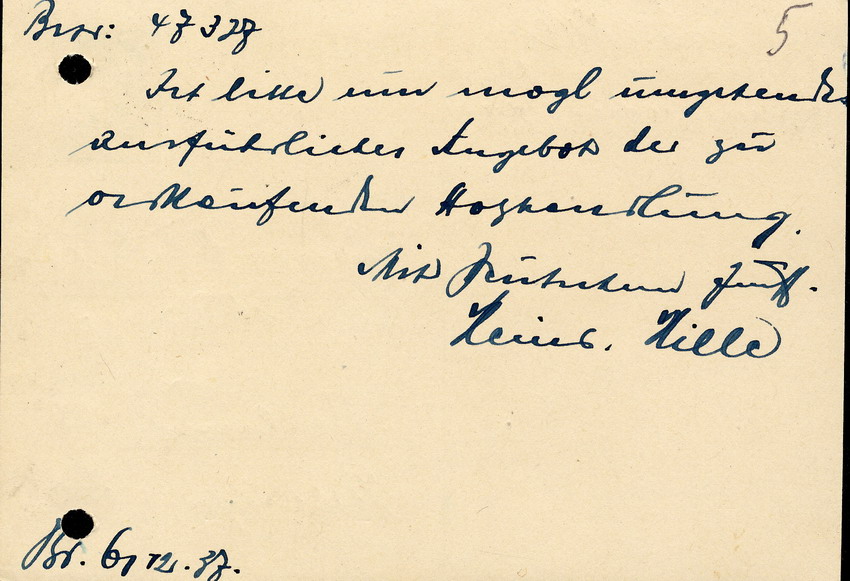 Betr: 47327
5
Ich bitte um mögl umgehendes
ausführliches Angebot der zu
verkaufenden Holzhandlung.
Mit Deutschem Gruß.
Heinr. Hille
Br. 6/12.37.